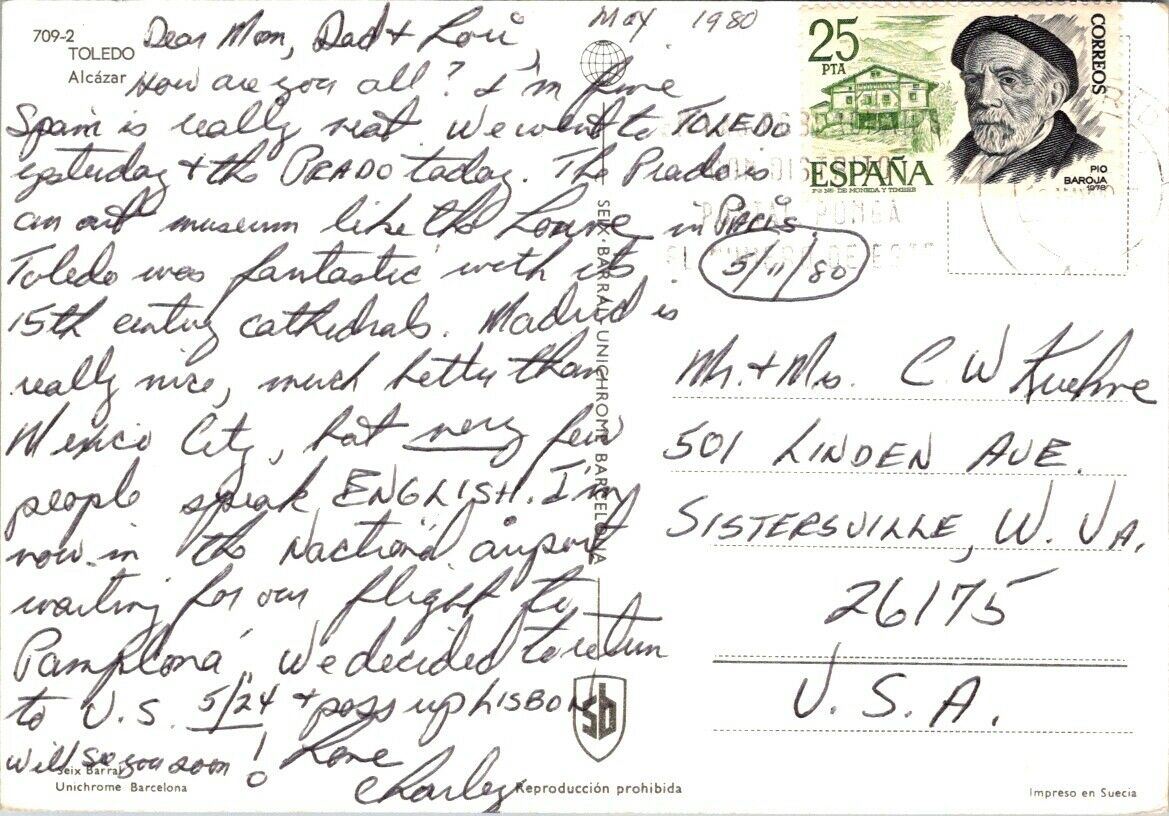 709-2
TOLEDO
Alcázar
May 1980
Dear Mom, Dad + Lori,
How are you all? I'm fine
Spain is really neat We went to TOLEDO
yesterday + the PRADO today. The Prado is
an art museum like the Louvre in PARIS.
Toledo was fantastic with its
15th century cathedrals. Madrid is
really nice, much better than
Mexico City, but very few
people speak ENGLISH. I'm
now in the Nactional airport
waiting for our flight to
Pamplona. We decided to return
to U.S. 5/24 + pass up LISBON
will see you soon! Love
Charley
5/11/80
25
PTA
CORREOS
ESPAÑA
PIO
BAROJA
1978
F. N. DE MONEDA Y TIMBRE
PONGA
Mr. + Mrs. C W Kuehne
501 LINDEN AVE.
SISTERSVILLE, W. VA.
26175
U.S.A.
SEIX-BARRAL UNICHROME BARCELONA
sb
Seix Barral
Unichrome Barcelona
Reproducción prohibida
Impreso en Suecia